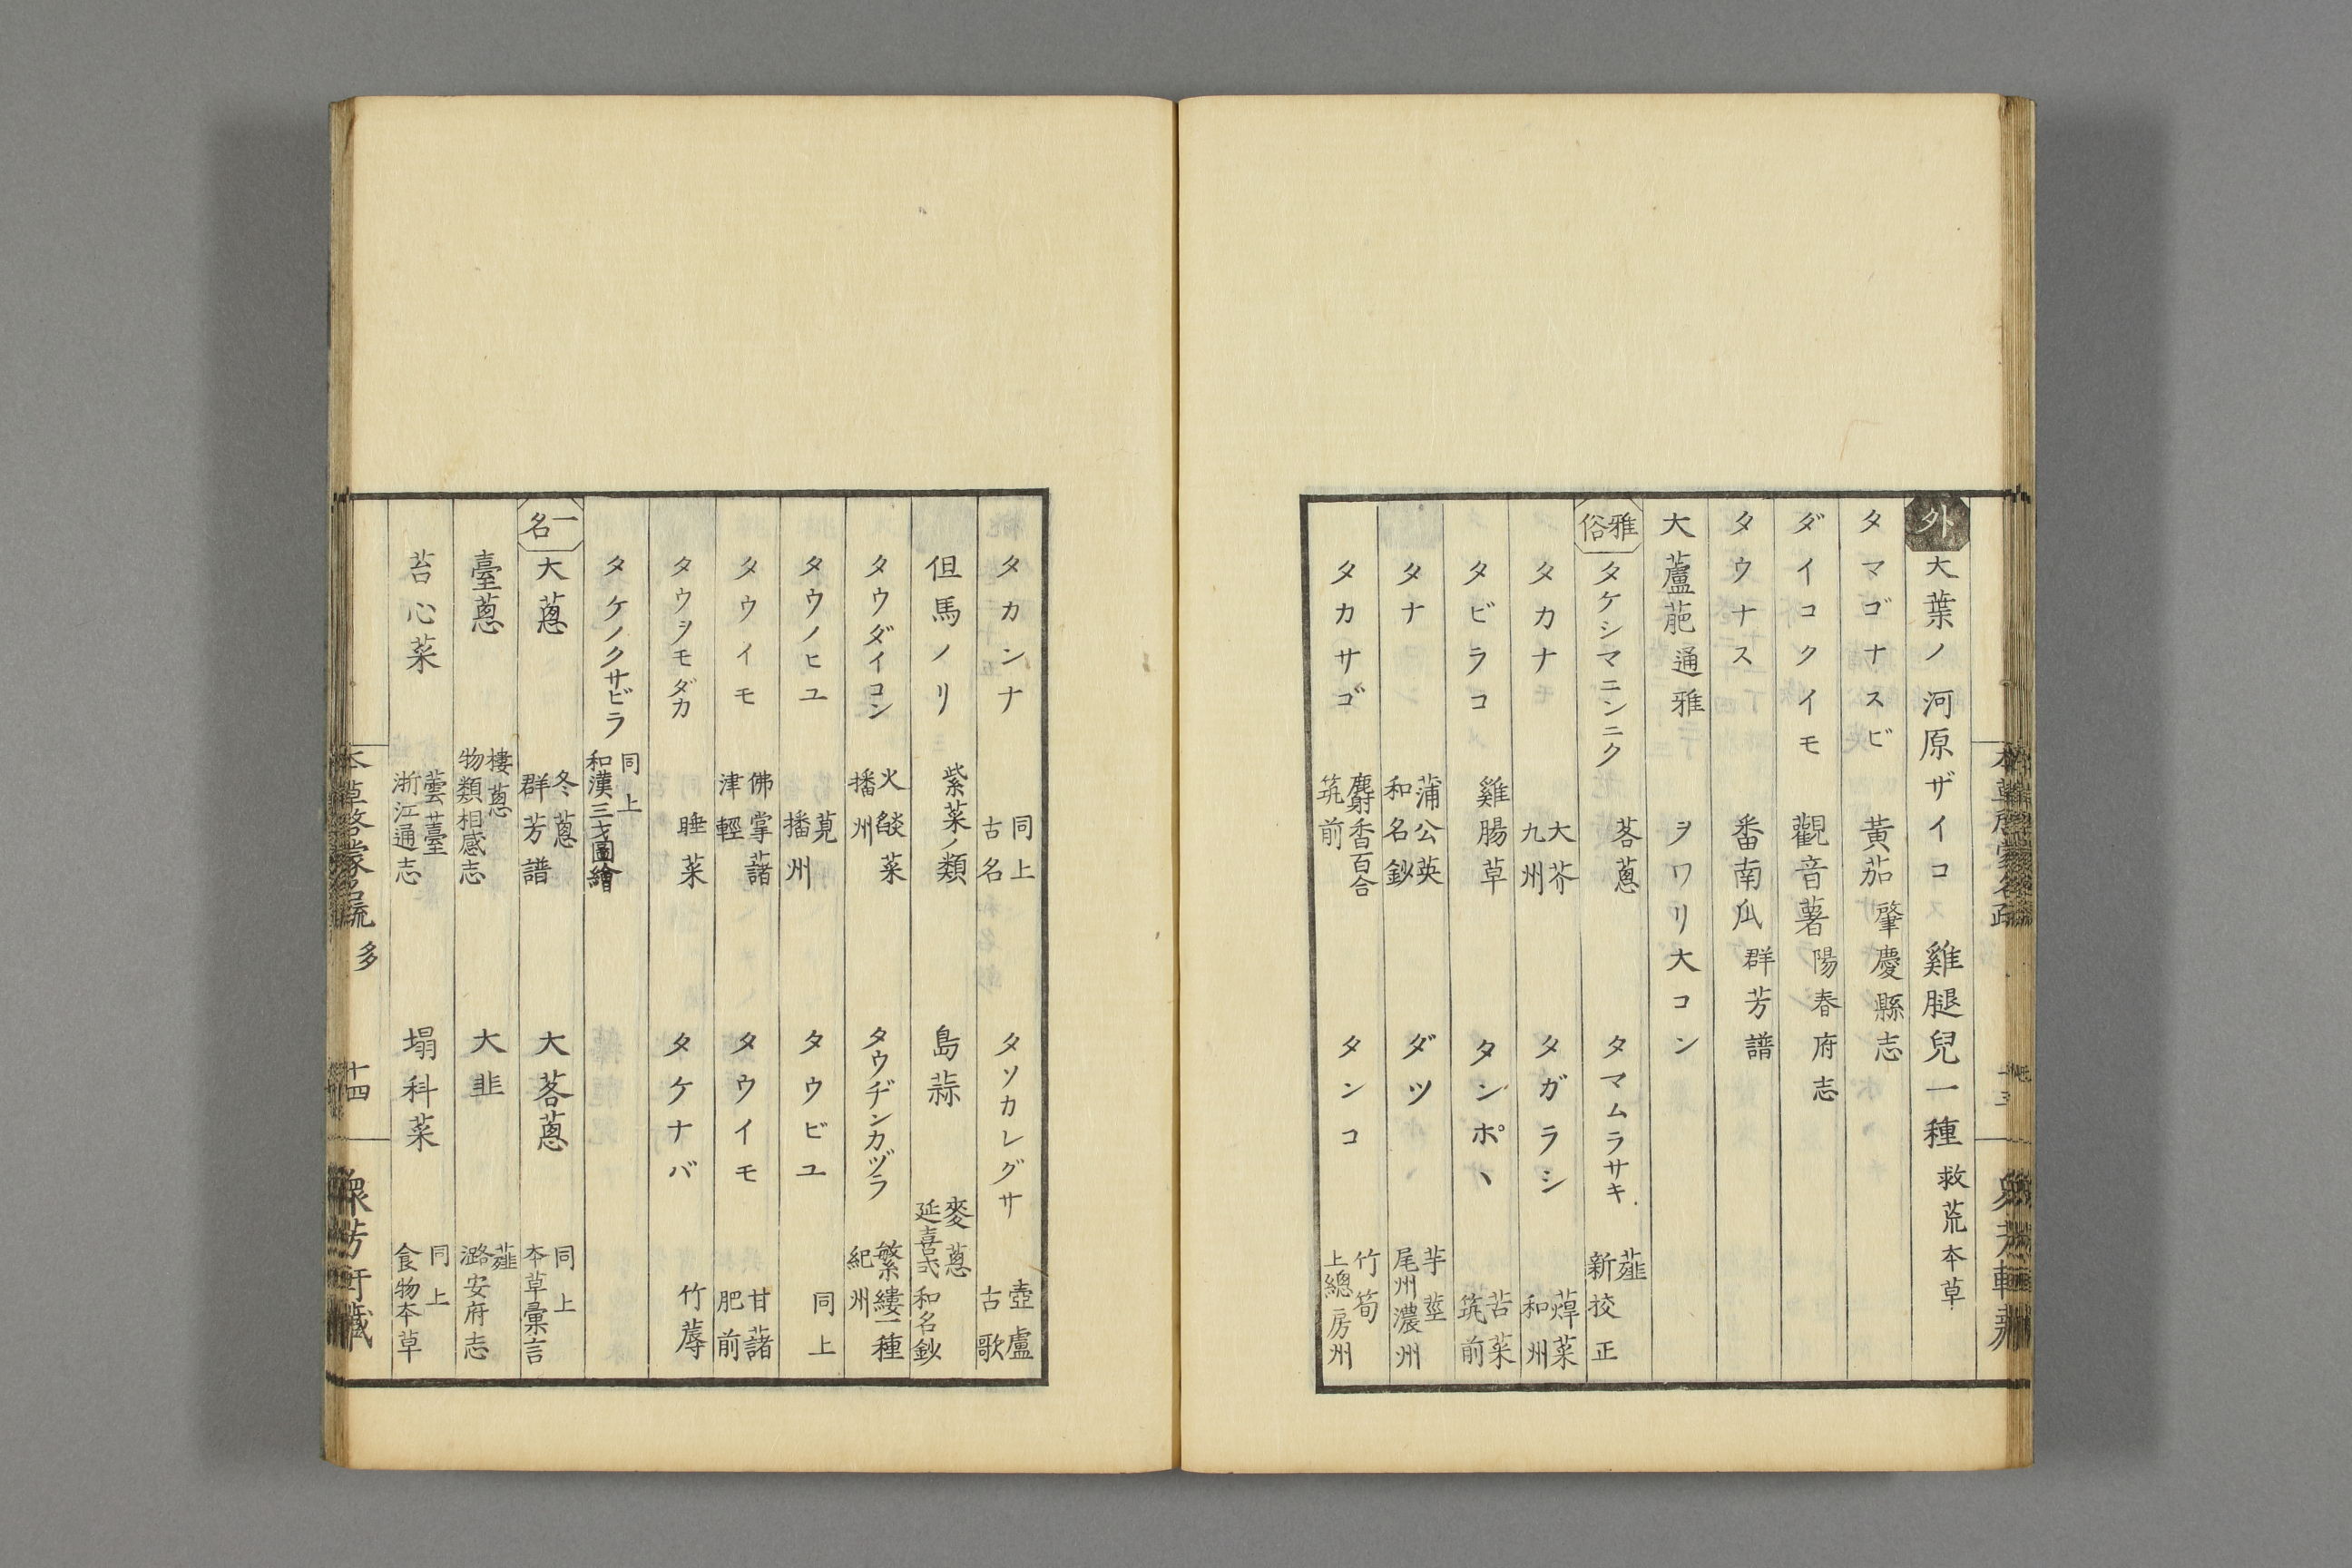 外 大葉ノ河原ザイコ 雞腿兒一種 救荒本草
タマゴナスビ 黃茄 肇慶縣志
ダイコクイモ 觀音薯 陽春府志
タウナス 番南瓜 群芳譜
大蘆萉 通雅 ヲワリ大コン
雅俗 タケシマニンニク 茖蔥 タマムラサキ 薤 新挍正
タカナ 大芥 九州 タガラシ 蔊菜 和州
タビラコ 雞腸草 タンポヽ 苦菜 筑前
タナ 蒲公英 和名鈔 ダツ 芋莖 尾州 濃州
タカサゴ 麝香百合 筑前 タンコ 竹筍 上總 房州
タカンナ 同上 古名 タソカレグサ 壺盧 古歌
但馬ノリ 紫菜ノ類 島蒜 麥蔥 延喜式 和名鈔
タウダイコン 火燄菜 播州 タウヂンカヅラ 繁縷一種 紀州
タウノヒユ 莧 播州 タウビユ 同上
タウイモ 佛掌藷 津輕 タウイモ 甘藷 肥前
タウヲモダカ 睡菜 タケナバ 竹蓐
タケノクサビラ 同上 和漢三才圖繪
一名 大蔥 冬蔥 群芳譜 大茖蔥 同上 本草彙言
臺蔥 樓蔥 物類相感志 大韭 薤 潞安府志
苔心菜 蕓薹 浙江通志 塌科菜 同上 食物本草
本草啓蒙名疏 多 十四 衆芳軒藏